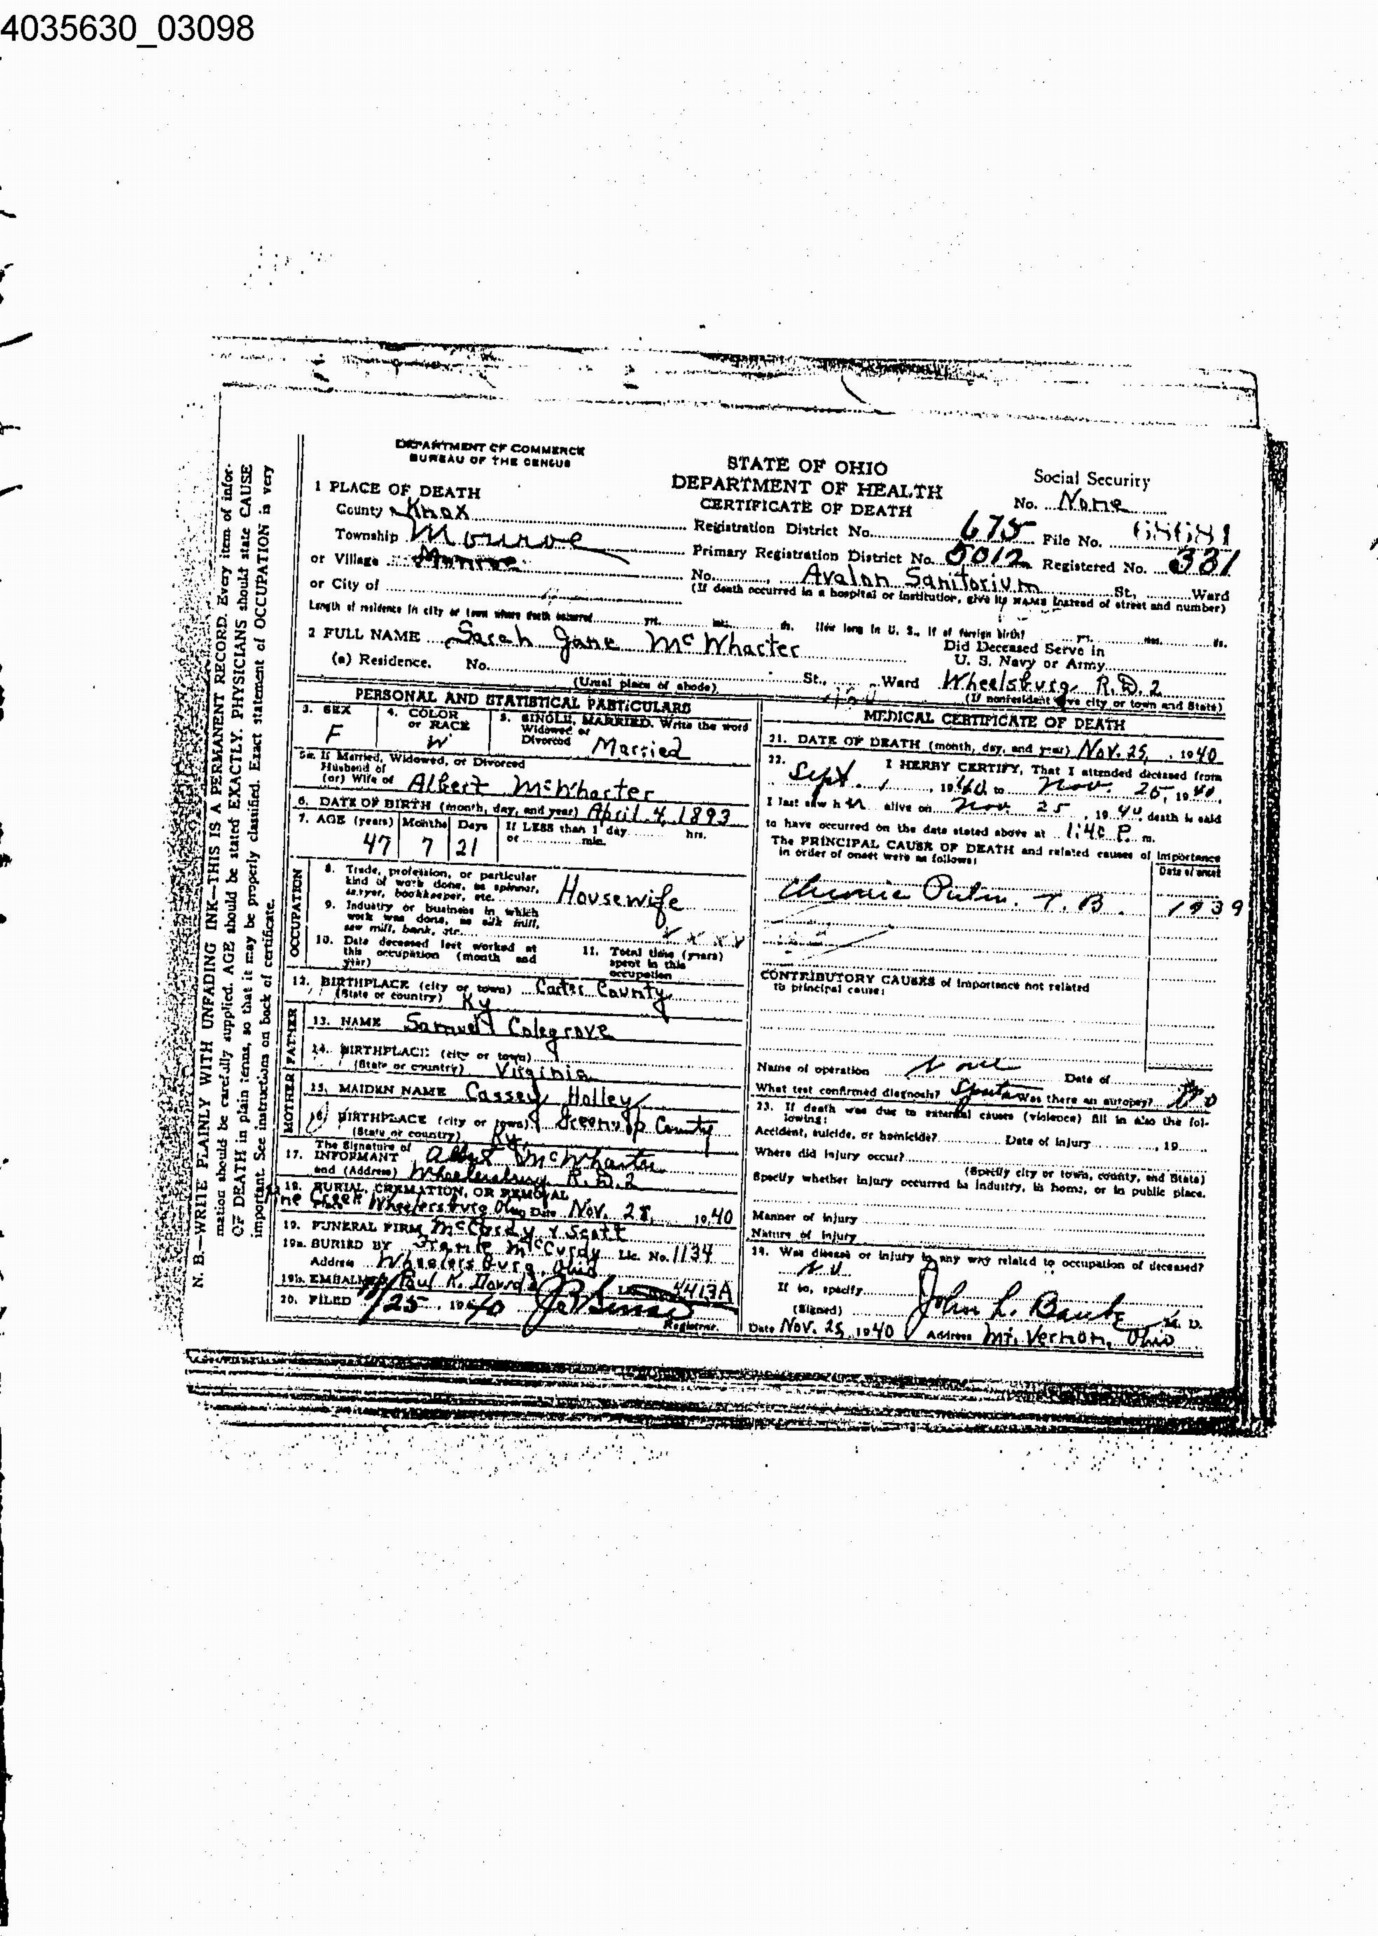 4035630_03098
DEPARTMENT OF COMMERCE
BUREAU OF THE CENSUS
STATE OF OHIO
DEPARTMENT OF HEALTH
CERTIFICATE OF DEATH
Social Security
No. None
1 PLACE OF DEATH
County Knox
Registration District No. 675 File No. 68681
Township Monroe
Primary Registration District No. 5012 Registered No. 331
or Village Monroe
No. Avalon Sanitorium St., Ward
(If death occurred in a hospital or institution, give its NAME instead of street and number)
or City of
Length of residence in city or town where death occurred yrs. mos. ds. How long in U. S., if of foreign birth? yrs. mos. ds.
2 FULL NAME Sarah Jane McWharter
Did Deceased Serve in
U. S. Navy or Army
(a) Residence. No. St., Ward Wheelsburg R.D. 2
(Usual place of abode) (If nonresident give city or town and State)
PERSONAL AND STATISTICAL PARTICULARS
3. SEX
F
4. COLOR
or RACE
W
5. SINGLE, MARRIED. Write the word
Widowed or
Divorced Married
5a. If Married, Widowed, or Divorced
Husband of
(or) Wife of Albert McWharter
6. DATE OF BIRTH (month, day, and year) April 4, 1893
7. AGE (years) Months Days If LESS than 1 day hrs.
or min.
47 7 21
OCCUPATION
8. Trade, profession, or particular
kind of work done, as spinner,
sawyer, bookkeeper, etc. Housewife
9. Industry or business in which
work was done, as silk mill,
saw mill, bank, etc.
10. Date deceased last worked at
this occupation (month and
year)
11. Total time (years)
spent in this
occupation
12. BIRTHPLACE (city or town) Carter County
(State or country) Ky
FATHER
13. NAME Samuel Colegrove
14. BIRTHPLACE (city or town)
(State or country) Virginia
MOTHER
15. MAIDEN NAME Cassey Holley
16. BIRTHPLACE (city or town) Greenupp County
(State or country) Ky
17. The Signature of
INFORMANT Albert McWharter
and (Address) Wheelersburg R.D.2
18. BURIAL, CREMATION, OR REMOVAL
Place Creek Wheelersburg Ohio Date Nov. 28, 1940
19. FUNERAL FIRM McCurdy & Scott
19a. BURIED BY Frank McCurdy Lic. No. 1134
Address Wheelersburg, Ohio
19b. EMBALMER Paul K. 4413A
20. FILED 11/25, 1940
Registrar.
MEDICAL CERTIFICATE OF DEATH
21. DATE OF DEATH (month, day, and year) Nov. 25, 1940
22. I HERBY CERTIFY, That I attended deceased from
Sept. 1, 1940 to Nov. 25, 1940,
I last saw her alive on Nov 25, 1940, death is said
to have occurred on the date stated above at 1:40 P. m.
The PRINCIPAL CAUSE OF DEATH and related causes of Importance
in order of onset were as follows:
Date of onset
Chronic Pulm. T. B. 1939
CONTRIBUTORY CAUSES of importance not related
to principal cause:
Name of operation None Date of
What test confirmed diagnosis? Sputum Was there an autopsy? No
23. If death was due to external causes (violence) fill in also the fol-
lowing:
Accident, suicide, or homicide? Date of injury , 19
Where did injury occur?
(Specify city or town, county, and State)
Specify whether injury occurred in industry, in home, or in public place.
Manner of injury
Nature of injury
24. Was disease or injury in any way related to occupation of deceased?
No
If so, specify
(Signed) John L. M. D.
Date Nov. 25 1940 Address Mt. Vernon, Ohio
N. B.—WRITE PLAINLY WITH UNFADING INK—THIS IS A PERMANENT RECORD. Every item of infor-
mation should be carefully supplied. AGE should be stated EXACTLY. PHYSICIANS should state CAUSE
OF DEATH in plain terms, so that it may be properly classified. Exact statement of OCCUPATION is very
important. See instructions on back of certificate.